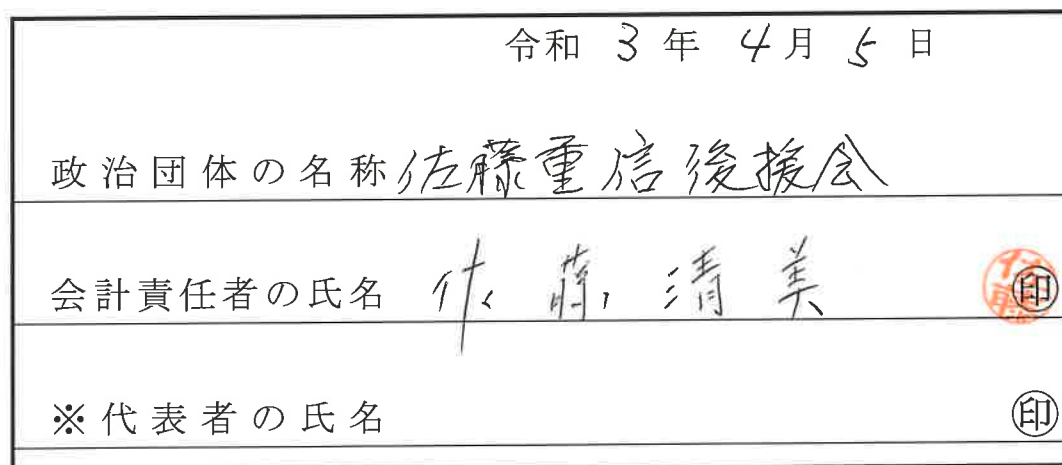 令和 3 年 4 月 5 日
政治団体の名称 佐藤重信後援会
会計責任者の氏名 佐藤清美 ㊞
※代表者の氏名 ㊞